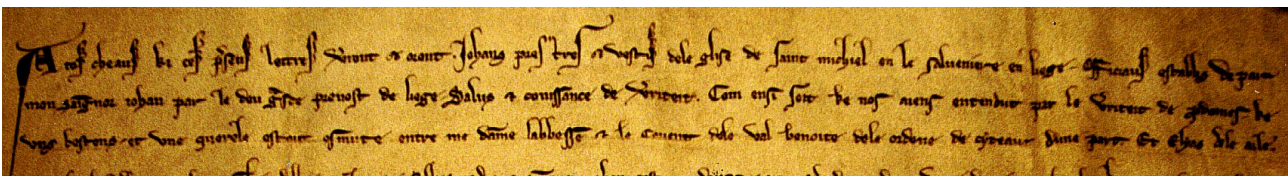 A tos cheaus ki ces presens lettres veront et oront Johans prestres et vestis dele glise de saint michiel en le salveniere en liege officiaus establis de par
mon saignor johan par le deu grasce prevost de liege salus et conissance de veriteit. Com ensi soit ke nos aiens entendut par le veriteit de preudomes ke
uns bestens et une querele estoit esmute entre me dame labbesse et le covent dele val benoite dele ordene de cyteaus dune part Et Elyas dele